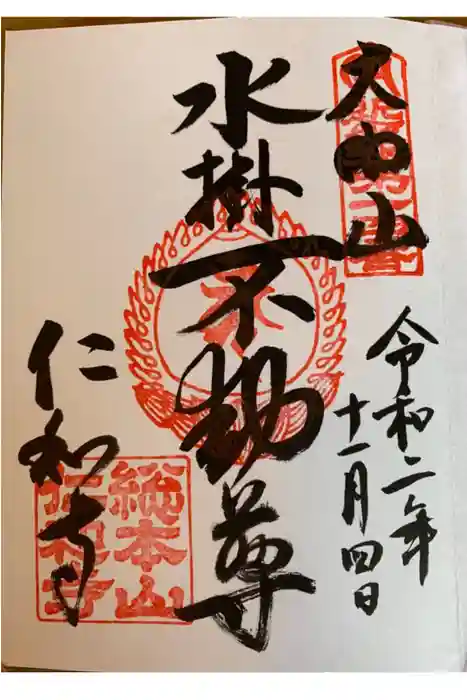 大内山
令和二年
十一月四日
水掛不動尊
仁和寺
総本山
仁和寺